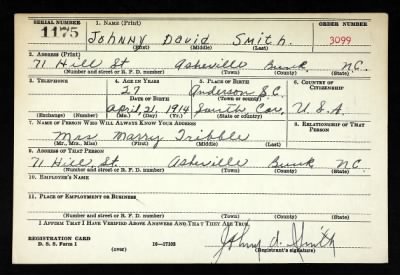 SERIAL NUMBER 1. NAME (Print) ORDER NUMBER
1175 Johnny David Smith. 3099
(First) (Middle) (Last)
2. ADDRESS (Print)
71 Hill St Asheville Bunk. N.C.
(Number and street or R. F. D. number) (Town) (County) (State)
3. TELEPHONE 4. AGE IN YEARS 5. PLACE OF BIRTH 6. COUNTRY OF CITIZENSHIP
27 Anderson S.C.
DATE OF BIRTH (Town or county)
April 21, 1914 South Car. U.S.A
(Exchange) (Number) (Mo.) (Day) (Yr.) (State or country)
7. NAME OF PERSON WHO WILL ALWAYS KNOW YOUR ADDRESS 8. RELATIONSHIP OF THAT PERSON
Mrs Marry Tribble
(Mr., Mrs., Miss) (First) (Middle) (Last)
9. ADDRESS OF THAT PERSON
71 Hill St. Asheville Bunk N.C.
(Number and street or R. F. D. number) (Town) (County) (State)
10. EMPLOYER'S NAME
11. PLACE OF EMPLOYMENT OR BUSINESS
(Number and street or R. F. D. number) (Town) (County) (State)
I AFFIRM THAT I HAVE VERIFIED ABOVE ANSWERS AND THAT THEY ARE TRUE.
REGISTRATION CARD
D. S. S. Form 1 (over) 16—17105 Johny d. Smith
(Registrant's signature)